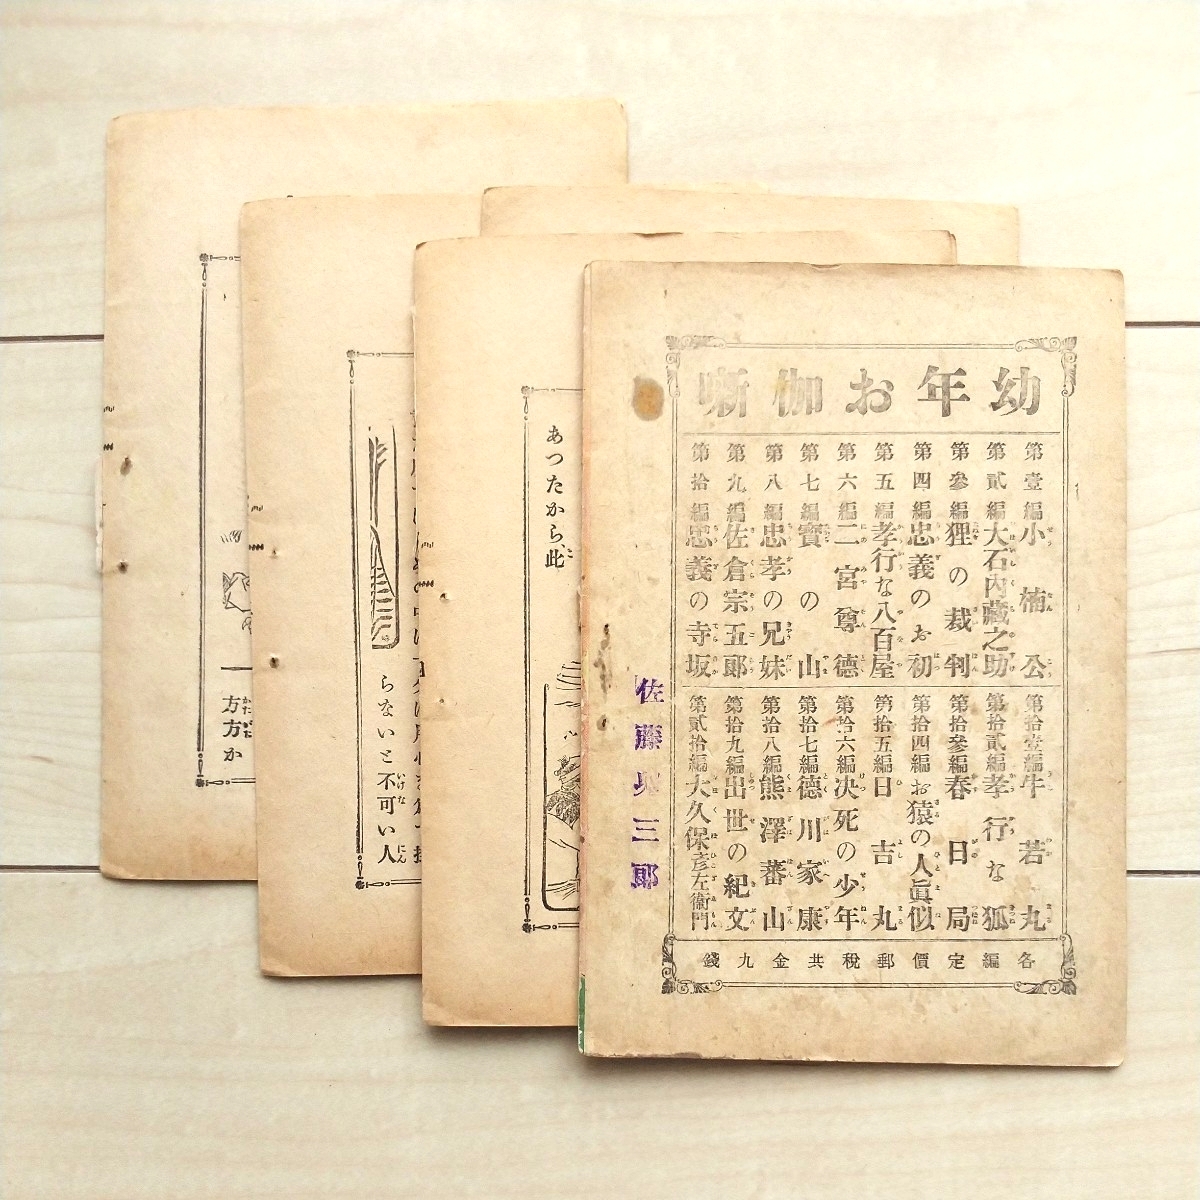 幼年お伽噺
第壹編 小楠公
第貳編 大石内藏之助
第參編 狸の裁判
第四編 忠義のお初
第五編 孝行な八百屋
第六編 二宮尊德
第七編 寶の山
第八編 忠孝の兄妹
第九編 佐倉宗五郎
第拾編 忠義の寺坂
第拾壹編 牛若丸
第拾貳編 孝行な狐
第拾參編 春日局
第拾四編 お猿の人眞似
第拾五編 日吉丸
第拾六編 决死の少年
第拾七編 德川家康
第拾八編 熊澤蕃山
第拾九編 出世の紀文
第貳拾編 大久保彦左衞門
各編定價郵税共金九錢
あつたから、此
らないと不可い人
方方か